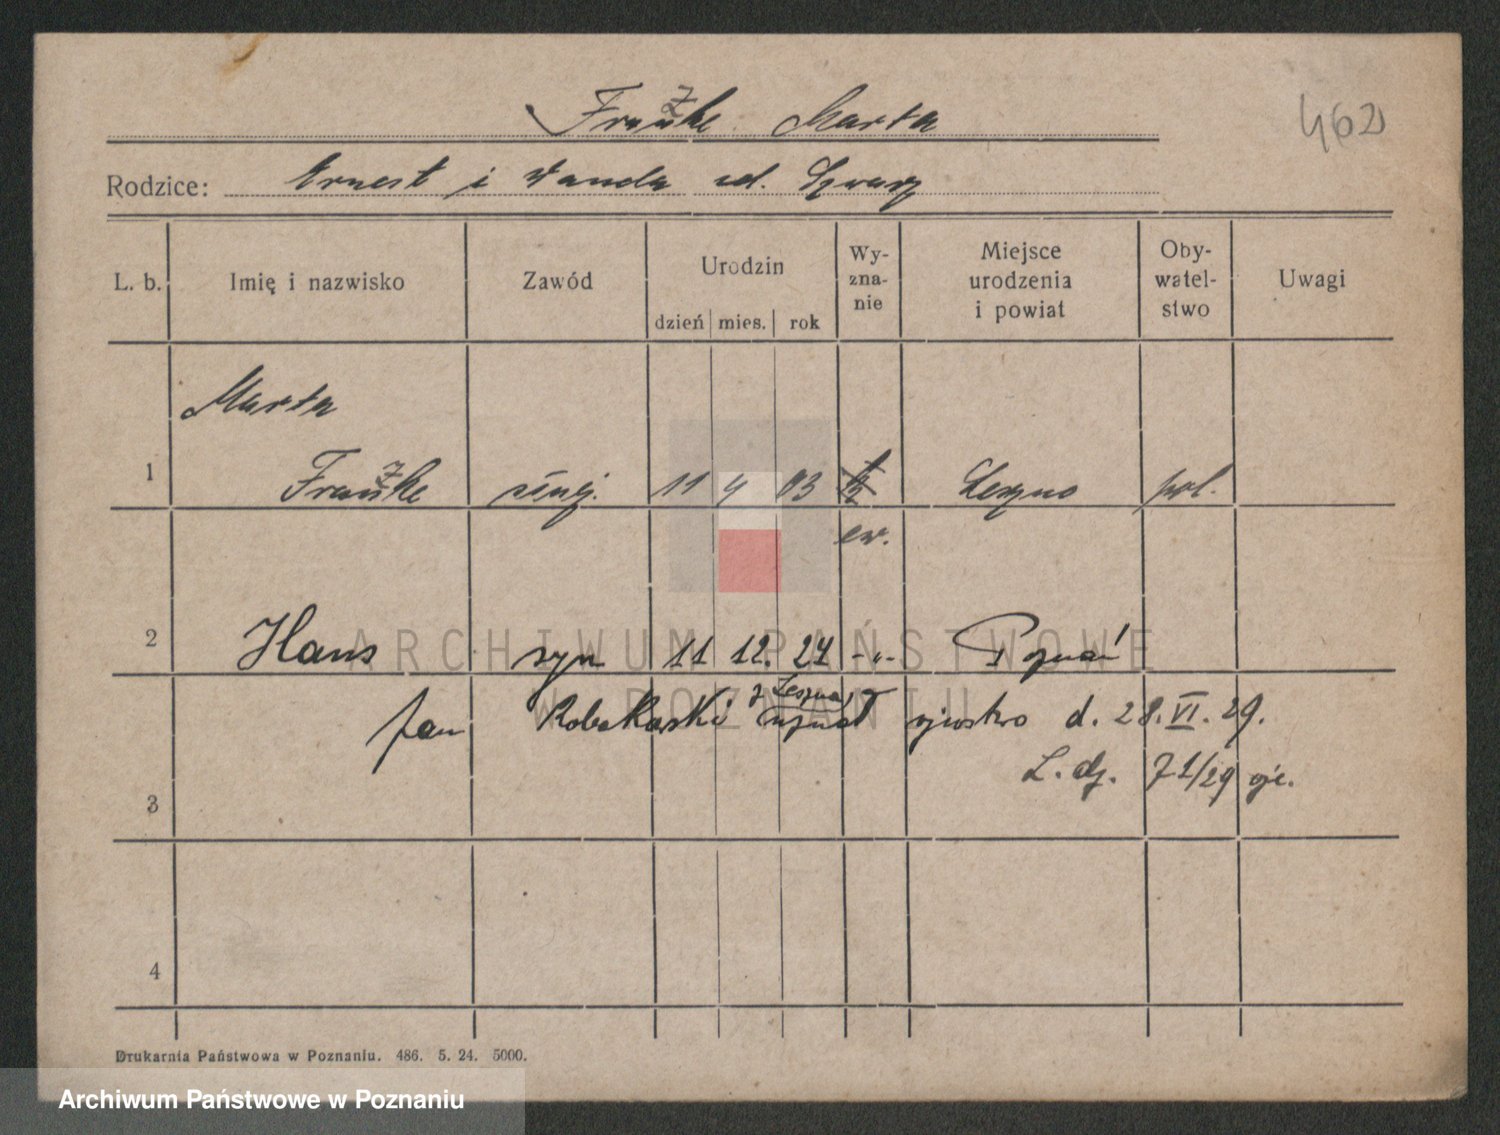 Marta
462
Rodzice: Ernest i Wanda
L. b. Imię i nazwisko Zawód Urodzin dzień mies. rok Wy-zna-nie Miejsce urodzenia i powiat Oby-watel-stwo Uwagi
Marta
1 służ. 11 4 03 Leszno pol.
ew.
2 Hans syn 11 12. 24 -„- Poznań
z Leszna,
Jan Robakowski uznał ojcostwo d. 28. VI. 29.
L. dz. 71/29 ojc.
3
4
Drukarnia Państwowa w Poznaniu. 486. 5. 24. 5000.
ARCHIWUM PAŃSTWOWE
W POZNANIU
Archiwum Państwowe w Poznaniu